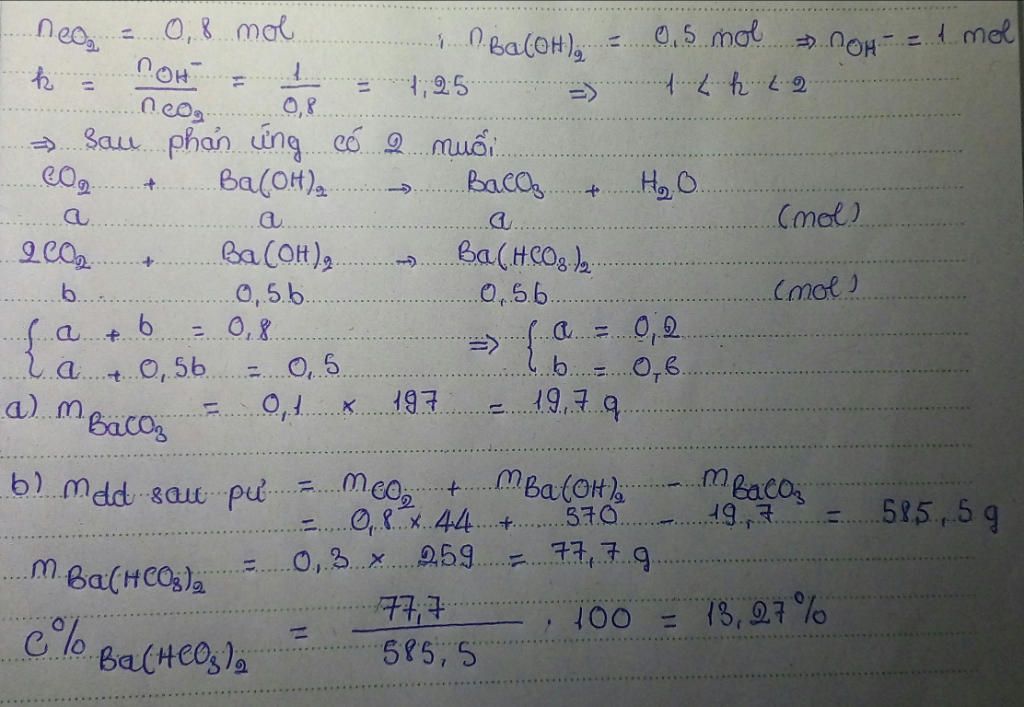 nCO₂ = 0,8 mol ; nBa(OH)₂ = 0,5 mol ⇒ nOH⁻ = 1 mol
k = nOH⁻ / nCO₂ = 1 / 0,8 = 1,25 ⇒ 1 < k < 2
⇒ Sau phản ứng có 2 muối
CO₂ + Ba(OH)₂ → BaCO₃ + H₂O
a a a (mol)
2CO₂ + Ba(OH)₂ → Ba(HCO₃)₂
b 0,5b 0,5b (mol)
{ a + b = 0,8 ⇒ { a = 0,2
{ a + 0,5b = 0,5 { b = 0,6
a) mBaCO₃ = 0,1 × 197 = 19,7 g
b) mdd sau pư = mCO₂ + mBa(OH)₂ - mBaCO₃
= 0,8 × 44 + 570 - 19,7 = 585,5 g
mBa(HCO₃)₂ = 0,3 × 259 = 77,7 g
C% Ba(HCO₃)₂ = 77,7 / 585,5 . 100 = 13,27%